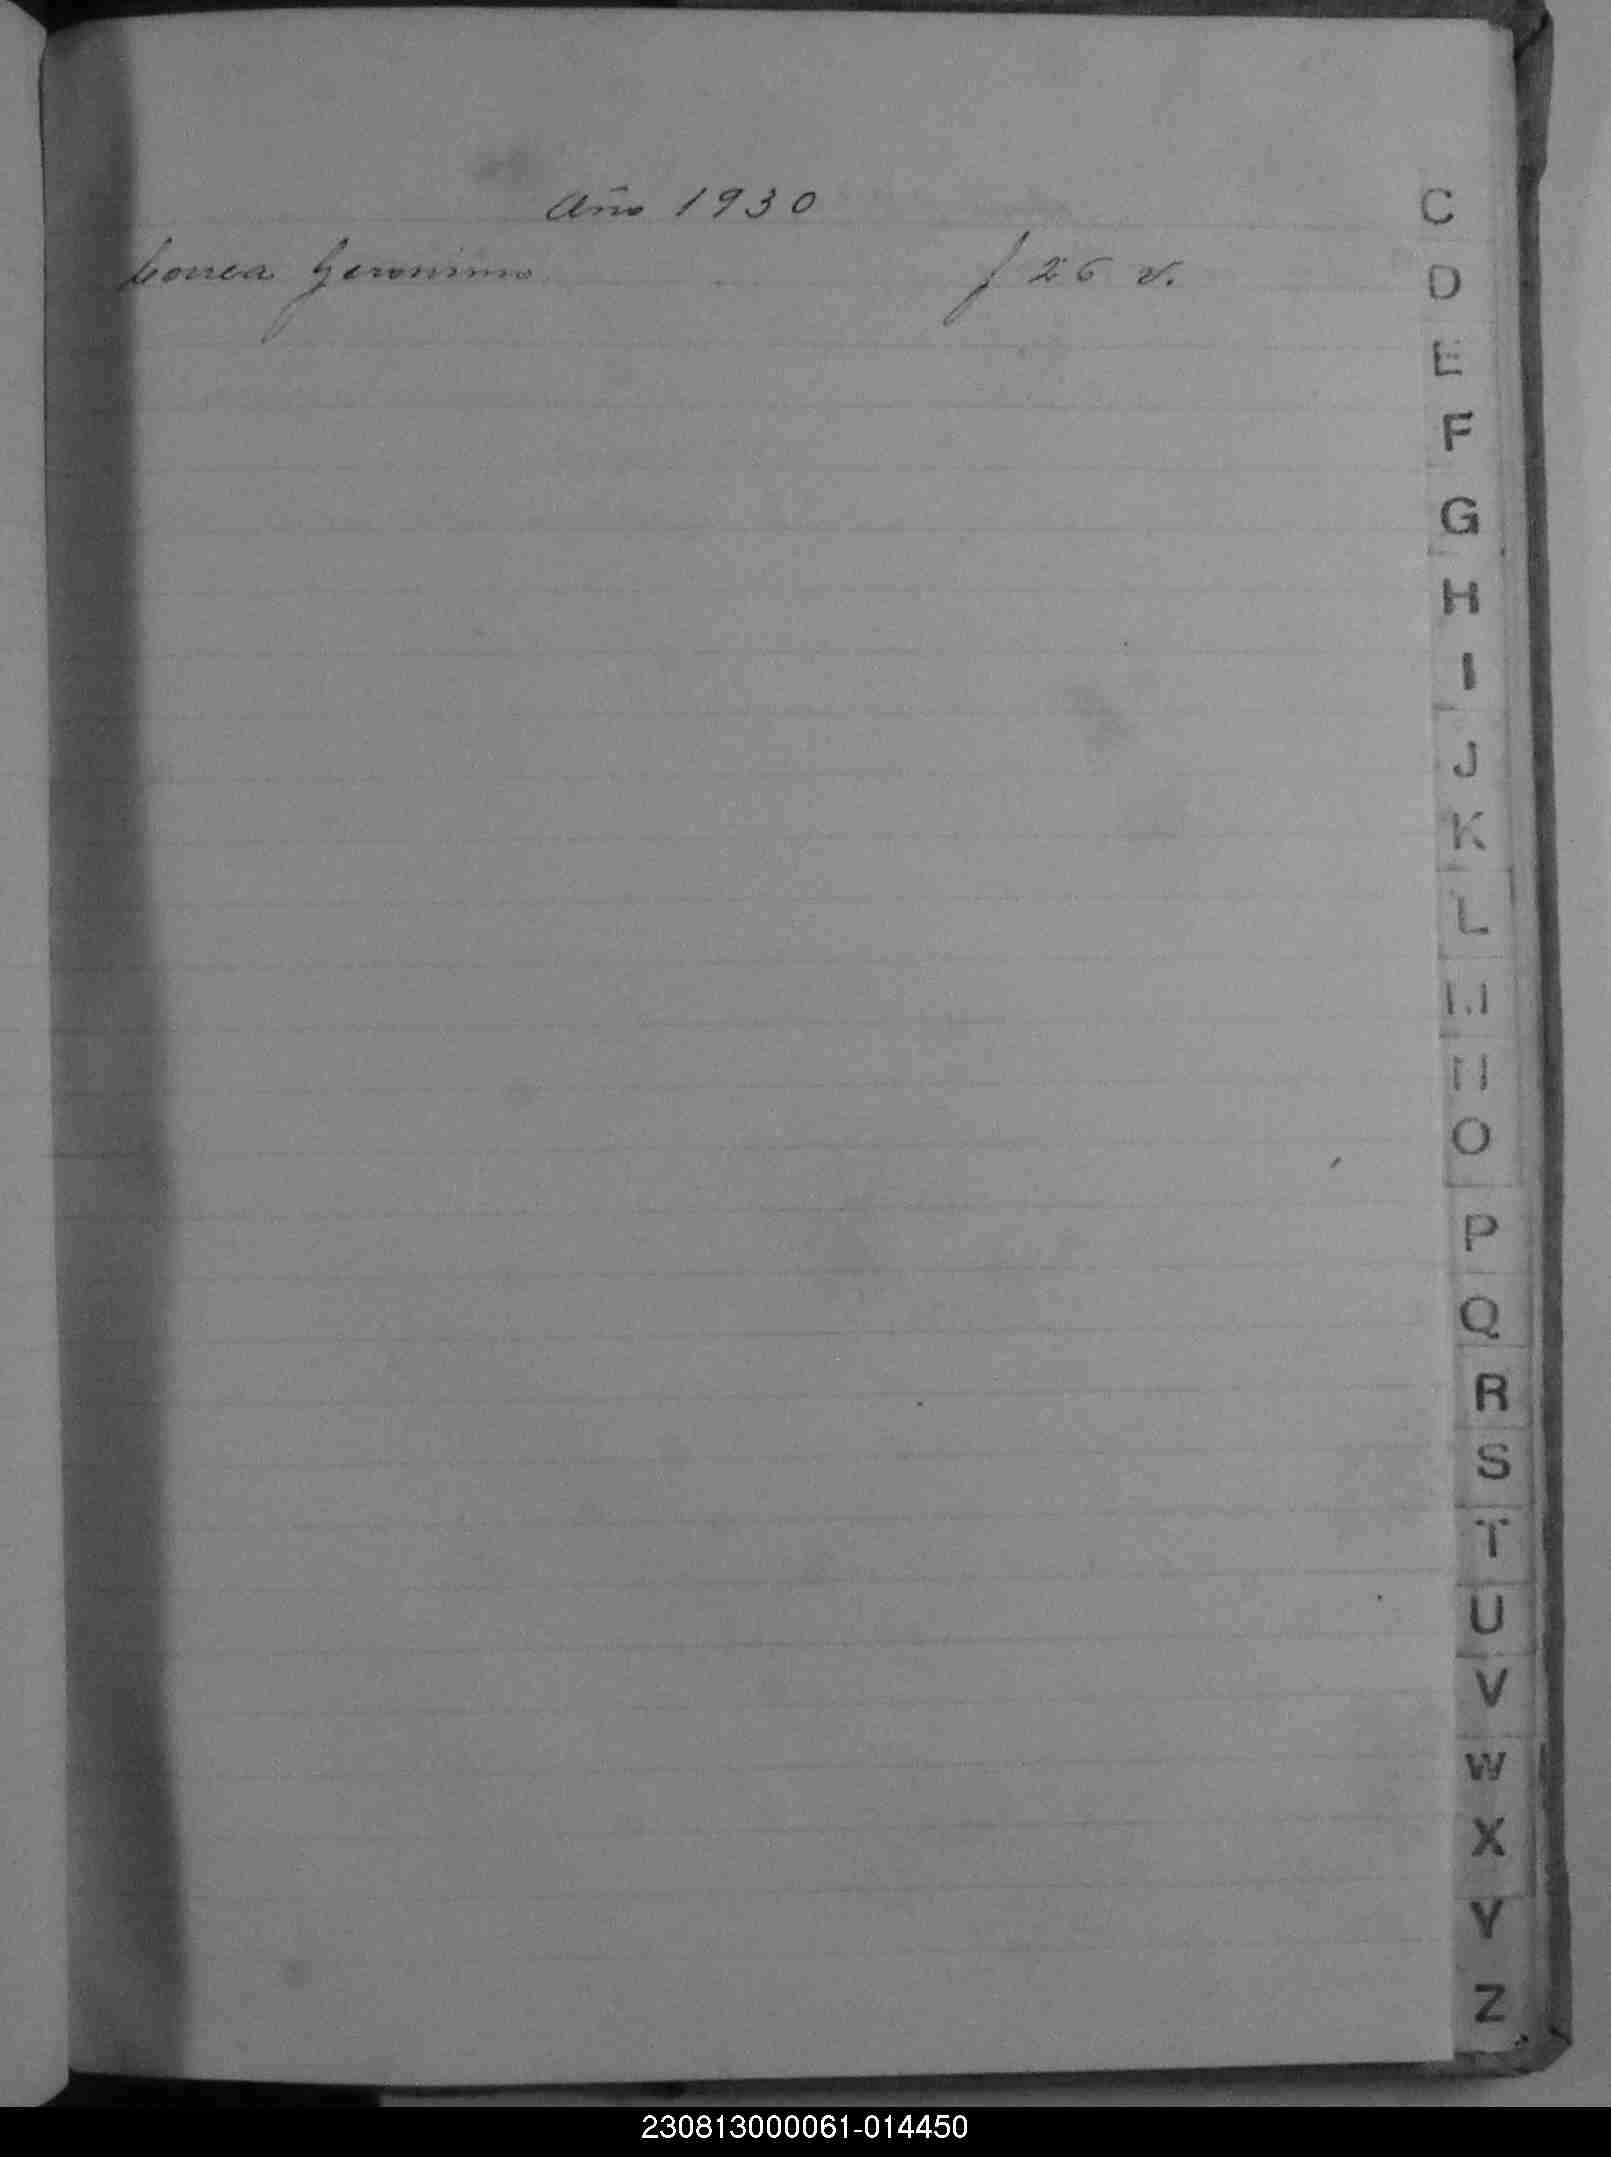 Año 1930
Correa Geronimo f 26 v.
C
D
E
F
G
H
I
J
K
L
M
N
O
P
Q
R
S
T
U
V
W
X
Y
Z
230813000061-014450